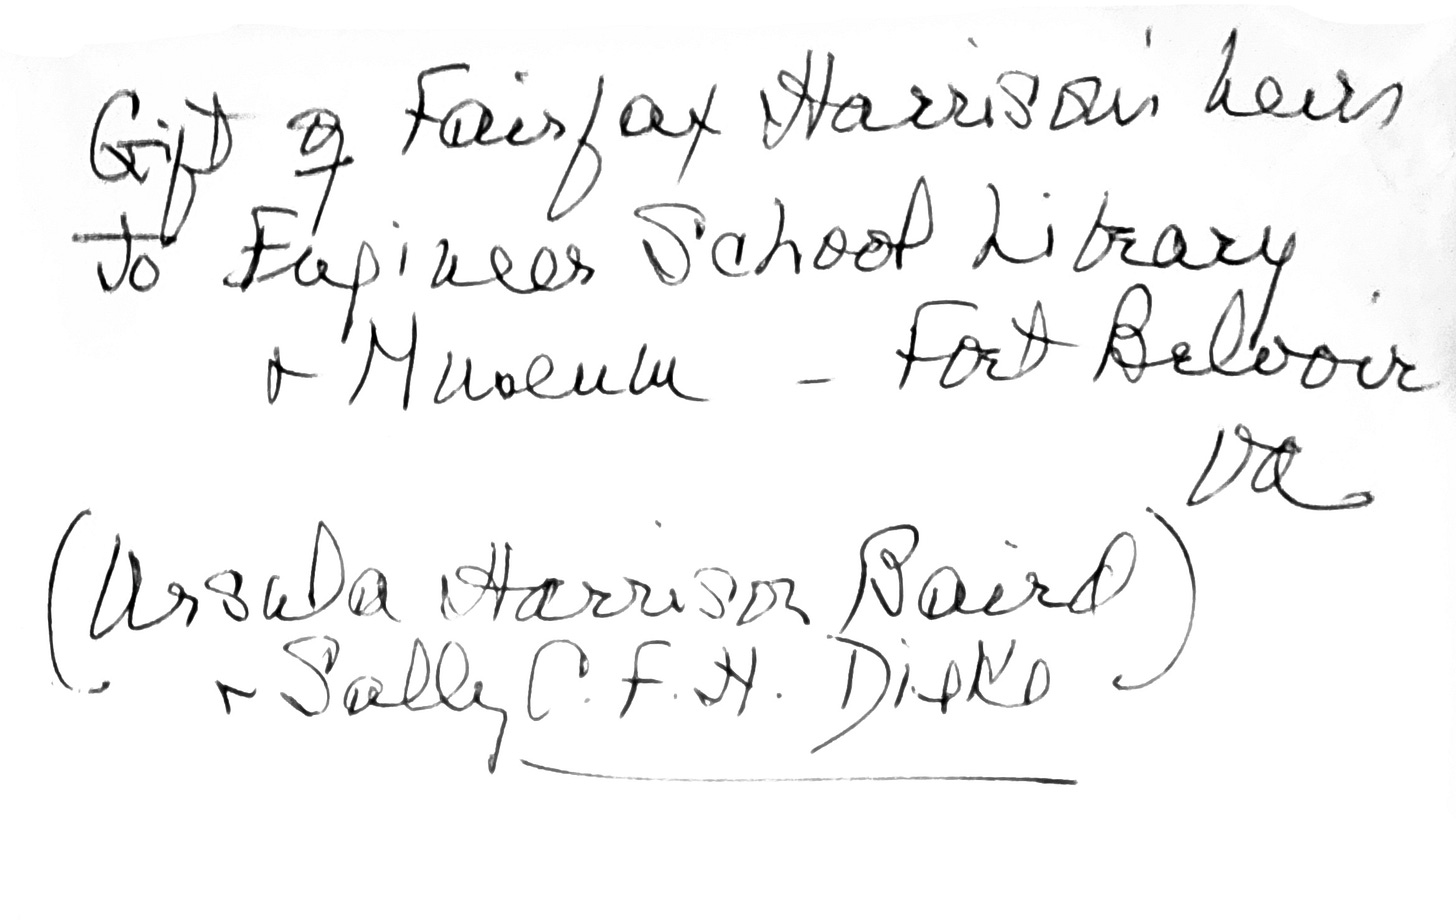 Gift of Fairfax Harrison's heirs
To Engineer School Library
+ Museum - Fort Belvoir
Va
(Ursula Harrison Baird
+ Sally C. F. H. Dieke)